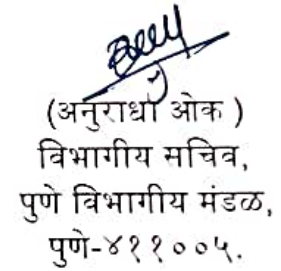 (अनुराधा ओक )
विभागीय सचिव,
पुणे विभागीय मंडळ,
पुणे-४११००५.